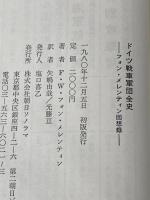 ドイツ戦車軍団全史
―フォン・メレンティン回想録―
一九八〇年十二月五日 初版発行
定価 二〇〇〇円
著者 F・W・フォン・メレンティン
訳者 矢嶋由哉／光藤亘
発行人 塩口喜乙
発行所 株式会社朝日ソノラマ
東京都中央区銀座四―二―六 第二朝日
電話〇三―五六三―六〇二一